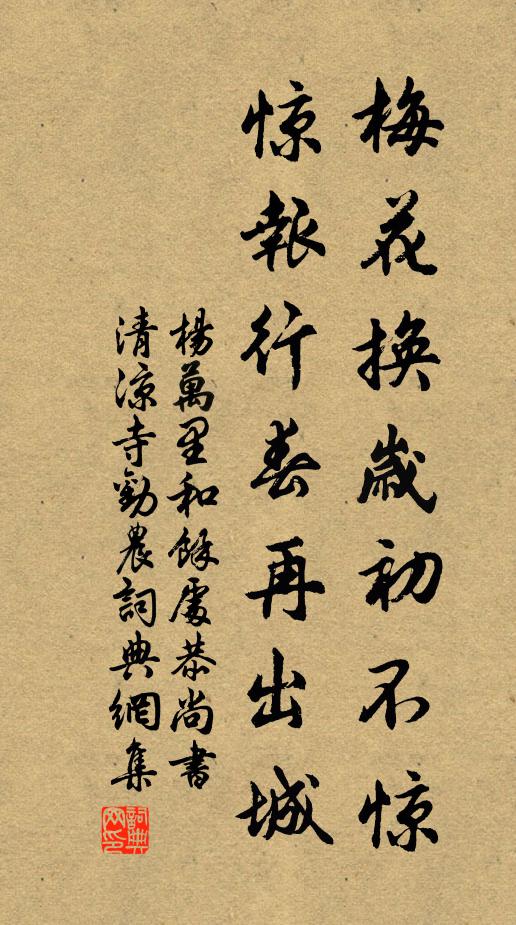 梅花换歲初不惊
惊報行春再出城
楊萬里和餘處恭尚書
清凉寺勸農詞典網集
詞典网印